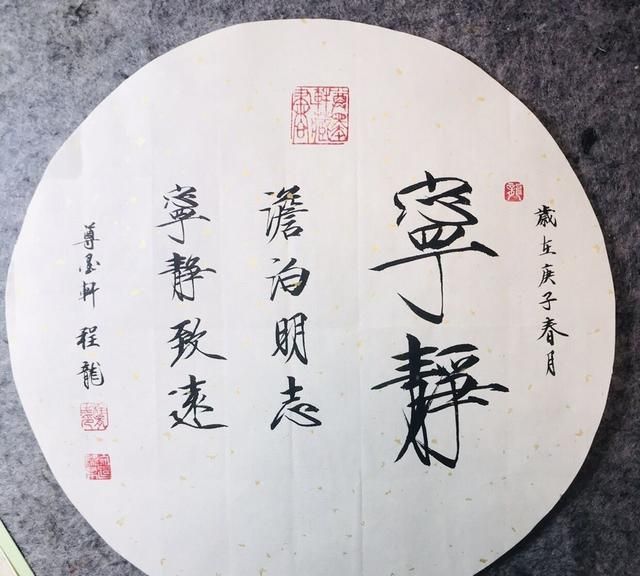 歲在庚子春月
寧靜
澹泊明志
寧靜致遠
尊墨軒 程龍